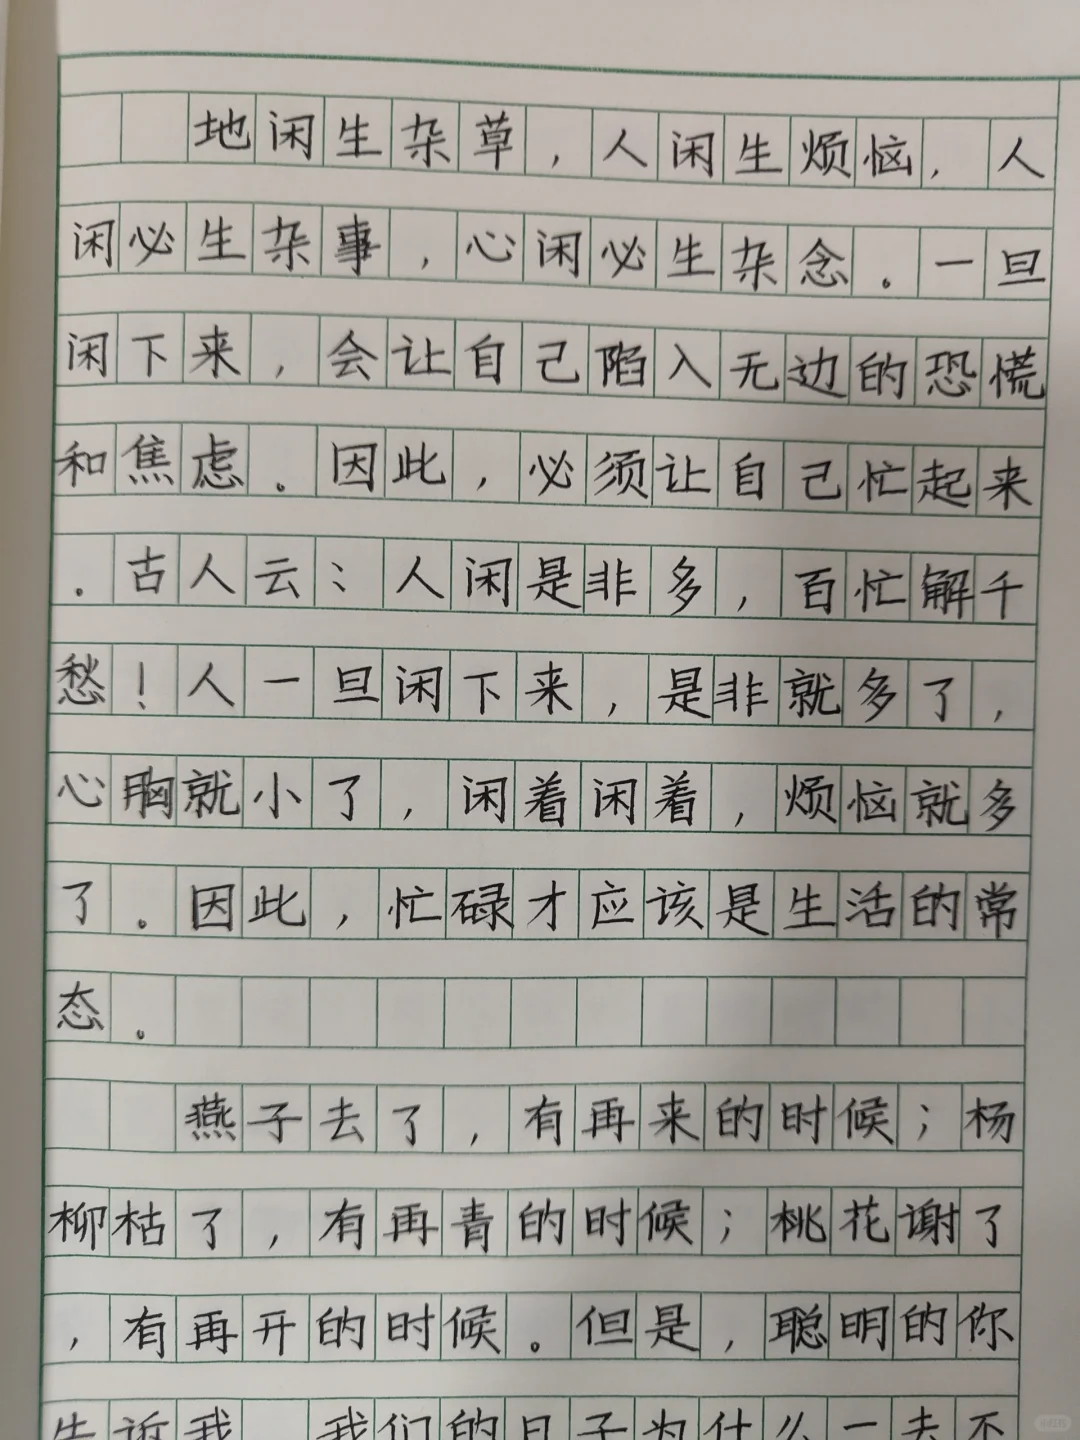 地闲生杂草，人闲生烦恼，人
闲必生杂事，心闲必生杂念。一旦
闲下来，会让自己陷入无边的恐慌
和焦虑。因此，必须让自己忙起来
．古人云：人闲是非多，百忙解千
愁！人一旦闲下来，是非就多了，
心胸就小了，闲着闲着，烦恼就多
了。因此，忙碌才应该是生活的常
态。
燕子去了，有再来的时候；杨
柳枯了，有再青的时候；桃花谢了
，有再开的时候。但是，聪明的你
告诉我，我们的日子为什么一去不